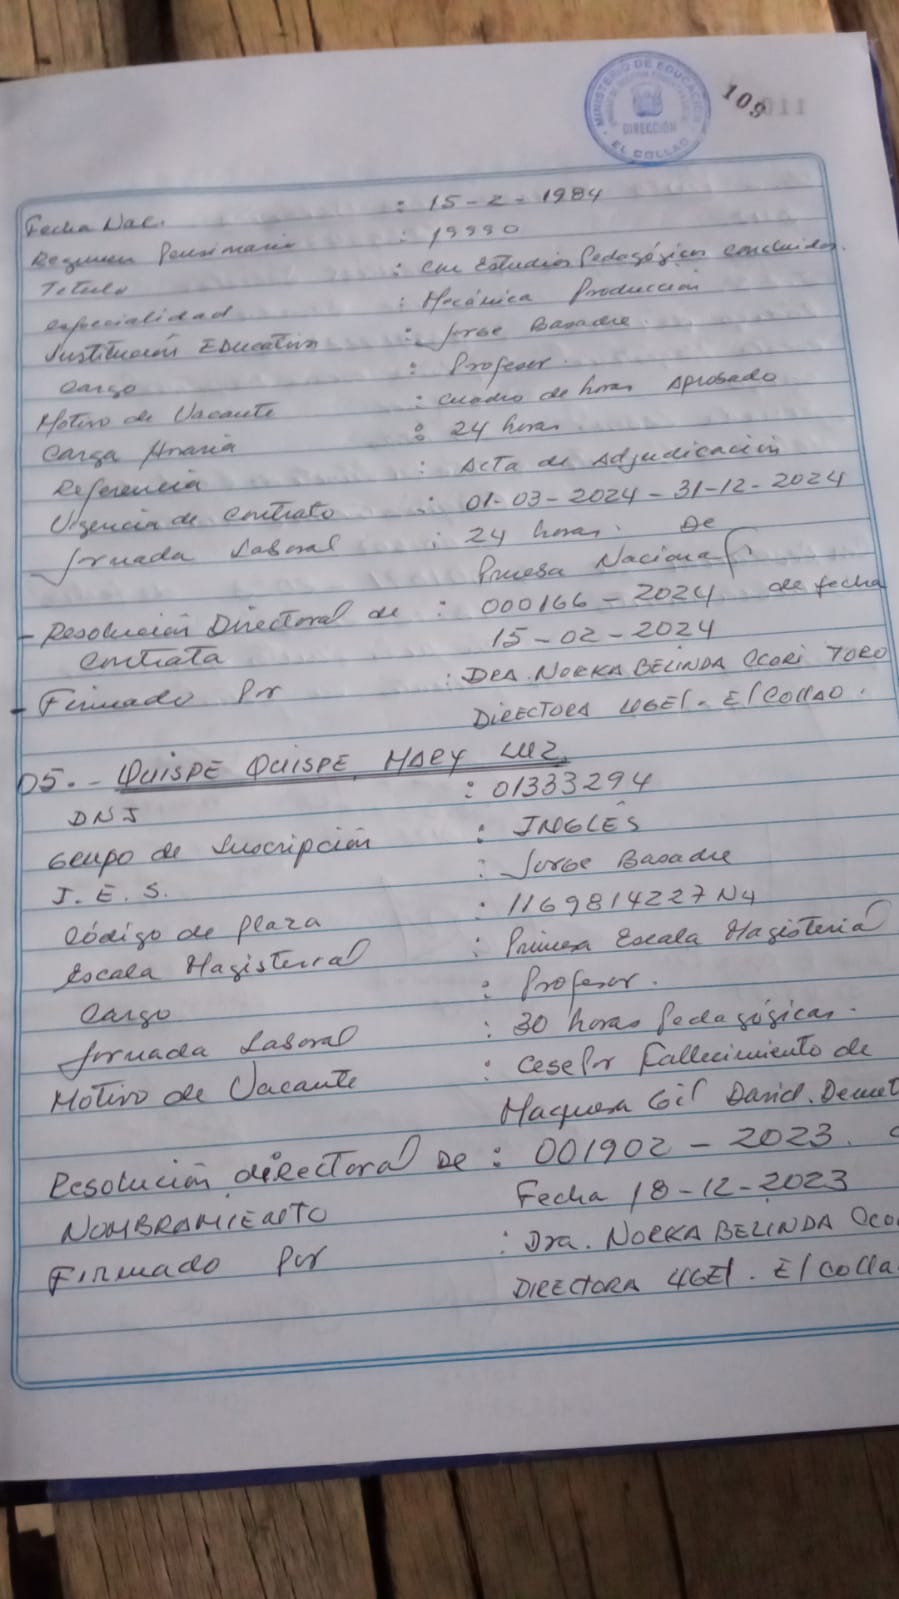 MINISTERIO DE EDUCACION
DIRECCIÓN
EL COLLAO
109
Fecha Nac. : 15-2-1984
Regimen Pensionario : 19990
Titulo : Con Estudios Pedagógicos concluidos.
especialidad : Mecánica Producción
Institución Educativa : Jorge Basadre.
Cargo : Profesor.
Motivo de Vacante : cuadro de horas Aprobado
Carga Horaria : 24 horas.
Referencia : Acta de Adjudicación
Vigencia de Contrato : 01-03-2024-31-12-2024
Jornada Laboral : 24 horas. De
Prueba Nacional
- Resolución Directoral de : 000166-2024 de fecha
Contrata 15-02-2024
- Firmado Por : DRA. NORKA BELINDA CCORI TORO
DIRECTORA UGEL. El COLLAO.
05.- QUISPE QUISPE, MARY LUZ.
DNI : 01333294
Grupo de Inscripción : INGLÉS
I.E.S. : Jorge Basadre
Código de plaza : 1169814227N4
Escala Magisterial : Primera Escala Magisterial
Cargo : Profesor.
Jornada Laboral : 30 horas Pedagógicas.
Motivo de Vacante : Cese Por Fallecimiento de
Maquera Gil David.
Resolución directoral DE : 001902-2023.
NOMBRAMIENTO Fecha 18-12-2023
Firmado Por : Dra. NORKA BELINDA
DIRECTORA UGEl. El Colla